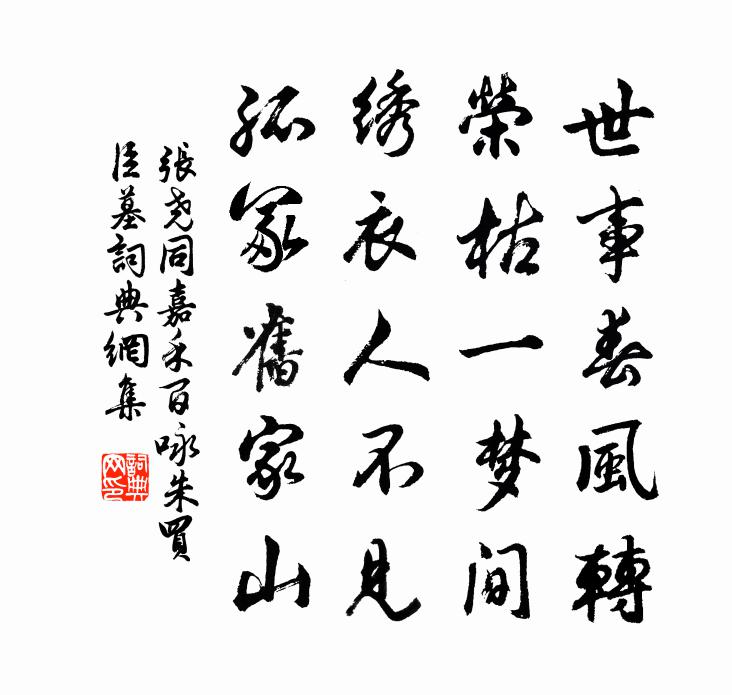 世事春風轉
榮枯一梦间
绣衣人不見
孤冢舊家山
張尧同嘉禾百咏朱買
臣墓詞典網集
詞典
网印